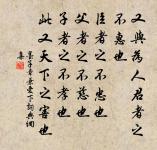 又與為人君者之
不惠也
臣者之不忠也
父者之不慈也
子者之不孝也
此又天下之害也
兼愛下詞典網
集